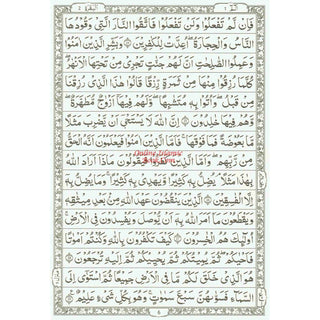 فَاِنْ لَّمْ تَفْعَلُوْا وَلَنْ تَفْعَلُوْا فَاتَّقُوا النَّارَ الَّتِیْ وَقُوْدُهَا
النَّاسُ وَالْحِجَارَةُ ۖۚ اُعِدَّتْ لِلْكٰفِرِیْنَ وَبَشِّرِ الَّذِیْنَ اٰمَنُوْا
وَعَمِلُوا الصّٰلِحٰتِ اَنَّ لَهُمْ جَنّٰتٍ تَجْرِیْ مِنْ تَحْتِهَا الْاَنْهٰرُ ؕ
كُلَّمَا رُزِقُوْا مِنْهَا مِنْ ثَمَرَةٍ رِّزْقًا ۙ قَالُوْا هٰذَا الَّذِیْ رُزِقْنَا
مِنْ قَبْلُ ۙ وَاُتُوْا بِهٖ مُتَشَابِهًا ؕ وَلَهُمْ فِیْهَاۤ اَزْوَاجٌ مُّطَهَّرَةٌ ۙۗ
وَّهُمْ فِیْهَا خٰلِدُوْنَ اِنَّ اللّٰهَ لَا یَسْتَحْیٖۤ اَنْ یَّضْرِبَ مَثَلًا
مَّا بَعُوْضَةً فَمَا فَوْقَهَا ؕ فَاَمَّا الَّذِیْنَ اٰمَنُوْا فَیَعْلَمُوْنَ اَنَّهُ الْحَقُّ
مِنْ رَّبِّهِمْ ۚ وَاَمَّا الَّذِیْنَ كَفَرُوْا فَیَقُوْلُوْنَ مَاذَاۤ اَرَادَ اللّٰهُ
بِهٰذَا مَثَلًا ۘ یُضِلُّ بِهٖ كَثِیْرًا ۙ وَّیَهْدِیْ بِهٖ كَثِیْرًا ؕ وَمَا یُضِلُّ بِهٖۤ
اِلَّا الْفٰسِقِیْنَ الَّذِیْنَ یَنْقُضُوْنَ عَهْدَ اللّٰهِ مِنْۢ بَعْدِ مِیْثَاقِهٖ ۪
وَیَقْطَعُوْنَ مَاۤ اَمَرَ اللّٰهُ بِهٖۤ اَنْ یُّوْصَلَ وَیُفْسِدُوْنَ فِی الْاَرْضِ ؕ
اُولٰٓئِكَ هُمُ الْخٰسِرُوْنَ كَیْفَ تَكْفُرُوْنَ بِاللّٰهِ وَكُنْتُمْ اَمْوَاتًا
فَاَحْیَاكُمْ ۚ ثُمَّ یُمِیْتُكُمْ ثُمَّ یُحْیِیْكُمْ ثُمَّ اِلَیْهِ تُرْجَعُوْنَ
هُوَ الَّذِیْ خَلَقَ لَكُمْ مَّا فِی الْاَرْضِ جَمِیْعًا ۗ ثُمَّ اسْتَوٰۤی اِلَی
السَّمَآءِ فَسَوّٰىهُنَّ سَبْعَ سَمٰوٰتٍ ؕ وَهُوَ بِكُلِّ شَیْءٍ عَلِیْمٌ
6